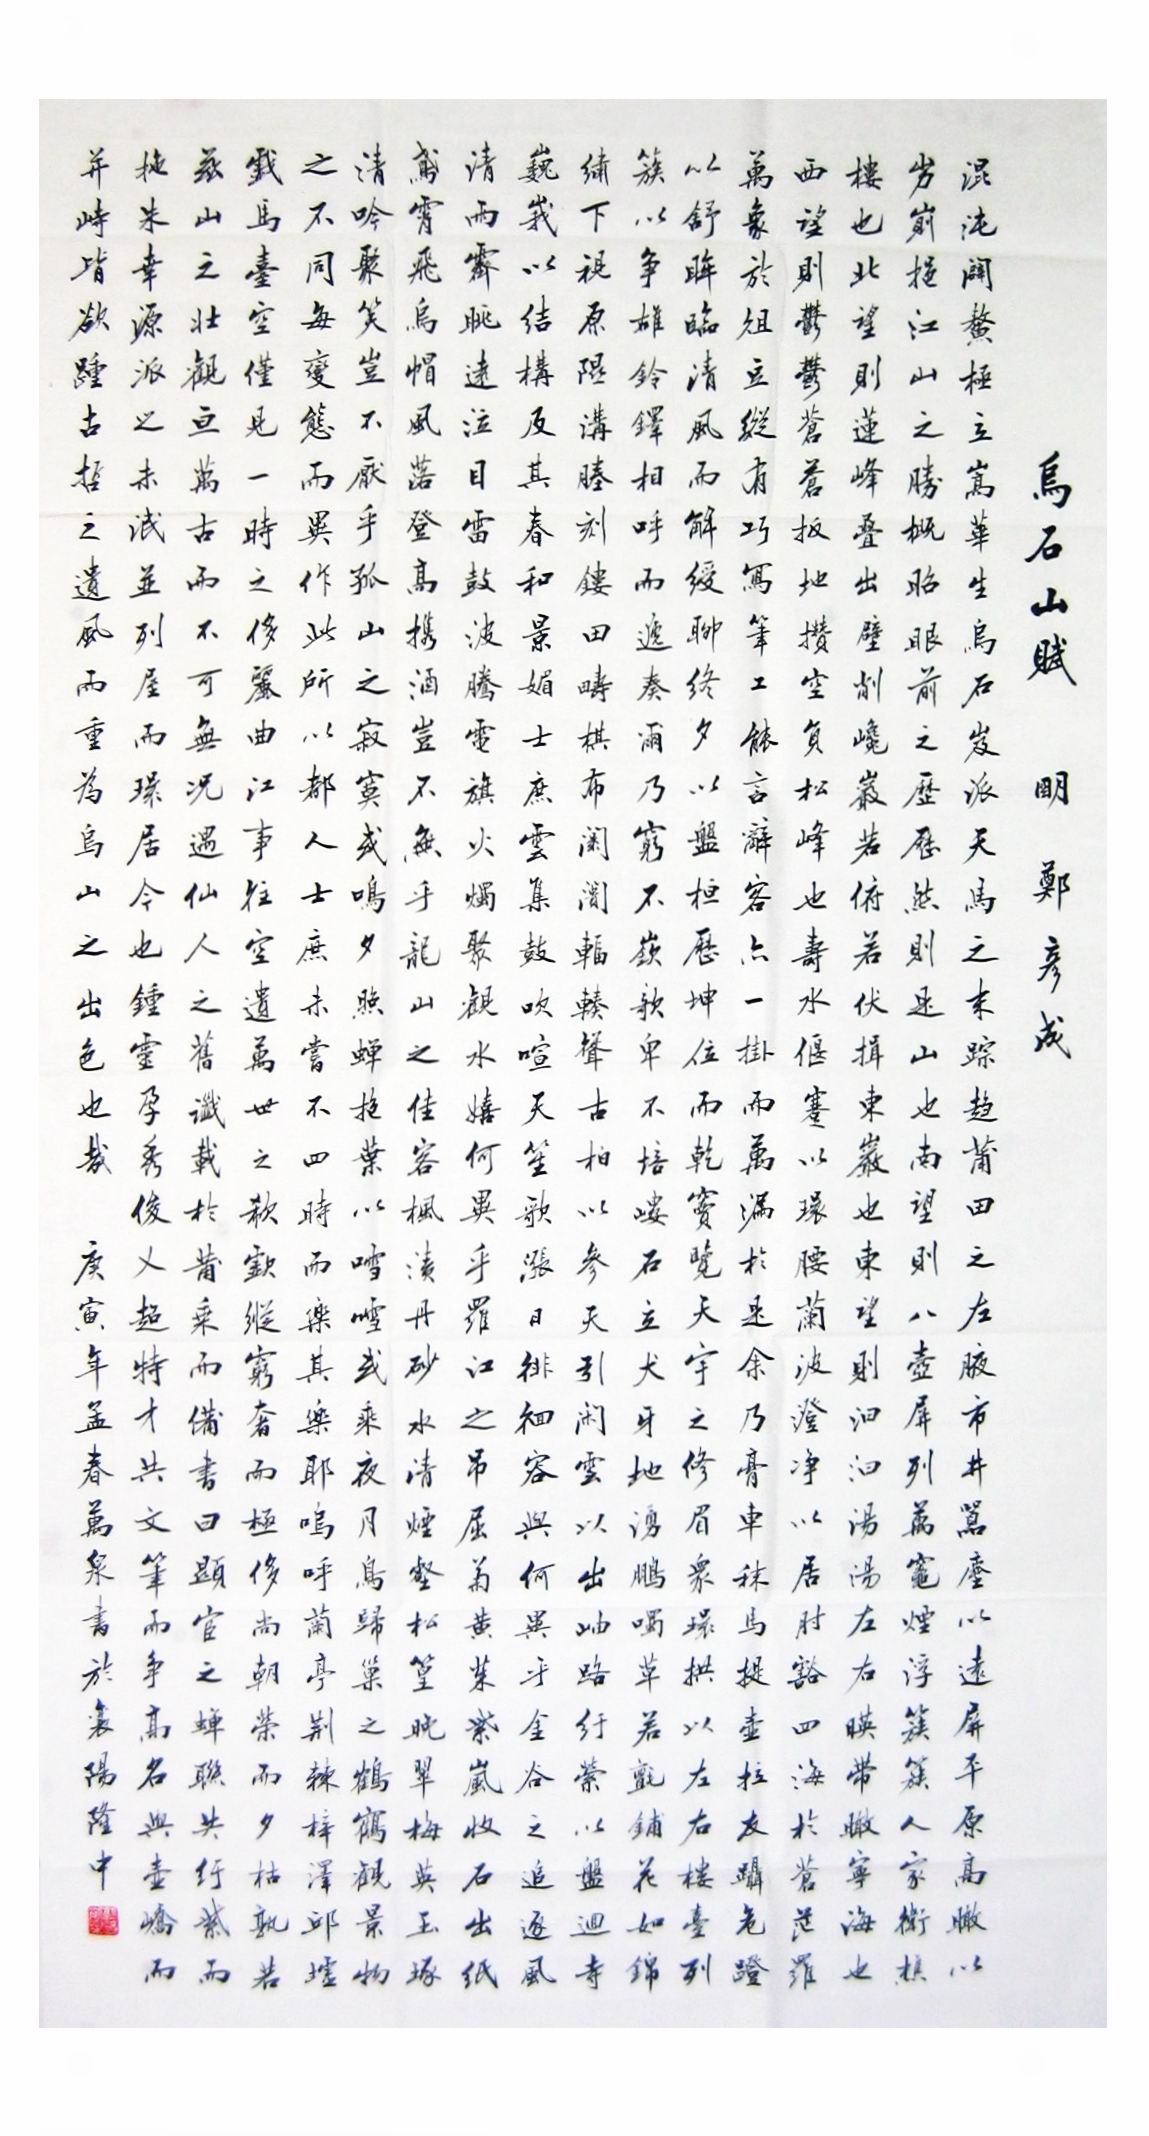 烏石山賦 明 鄭彥成
混沌闢鰲極立嵩華生烏石發派天馬之來踪趋莆田之左腋市井囂塵以遠屏平原高瞰以
岁崩挹江山之勝概眙眼前之歷歷然則是山也南望則八壺屏列萬竈煙浮簇簇人家衡樵
樓也北望則蓮峰叠出壁削巉巖若俯若伏揖東巖也東望則汩汩湯湯左右暎帶瞰寧海也
西望則鬱鬱蒼蒼扱地攢空負松峰也壽水偃蹇以環腰蘭波澄净以居肘豁四海於蒼茫羅
萬象於俎立縱有巧寫筆工能言辭客亦一掛而萬漏於是余乃膏車秣馬提壺拉友躡危蹬
以舒眸臨清風而解綬聊終夕以盤桓歷坤位而乾竇覽天宇之修眉衆環拱以左右樓臺列
簇以争雄鈴鐸相呼而遞奏爾乃窮不嶔歌卑不培嶁石立犬牙地湧鵬噣草若氈鋪花如錦
繡下視原隰溝塍刻鏤田疇棋布闤闠輻輳聲古柏以參天引闲雲以出岫路紆縈以盤迴寺
巍峩以結構及其春和景媚士庶雲集鼓吹喧天笙歌漲日徘徊容與何異乎金谷之追逐風
清雨霽眺遠泣目雷鼓波騰電旗火燭聚觀水嬉何異乎羅江之吊屈菊黄茱紫嵐收石出紙
鳶霄飛烏帽風落登高携酒豈不無乎龍山之佳客楓漬丹砂水清煙壑松篁晚翠梅英玉琢
清吟聚笑豈不厭乎孤山之寂寞或鳴夕照蟬抱葉以嘒嘒或乘夜月鳥歸巢之鶴鶴觀景物
之不同每變態而異作此所以都人士庶未嘗不四時而樂其樂耶嗚呼蘭亭荆棘梓澤邱墟
戲馬臺空僅見一時之侈麗曲江事往空遺萬世之欷歔縱窮奢而極侈尚朝榮而夕枯孰若
茲山之壮觀亘萬古而不可無况遇仙人之舊讖載於莆乘而備書曰顯宦之蝉聯共紆紫而
拖朱幸源派之未泯並列屋而環居今也鍾靈孕秀俊乂超特才共文筆而争高名與壺嶠而
并峙皆欲踵古哲之遺風而重為烏山之出色也哉 庚寅年孟春萬泉書於襄陽隆中